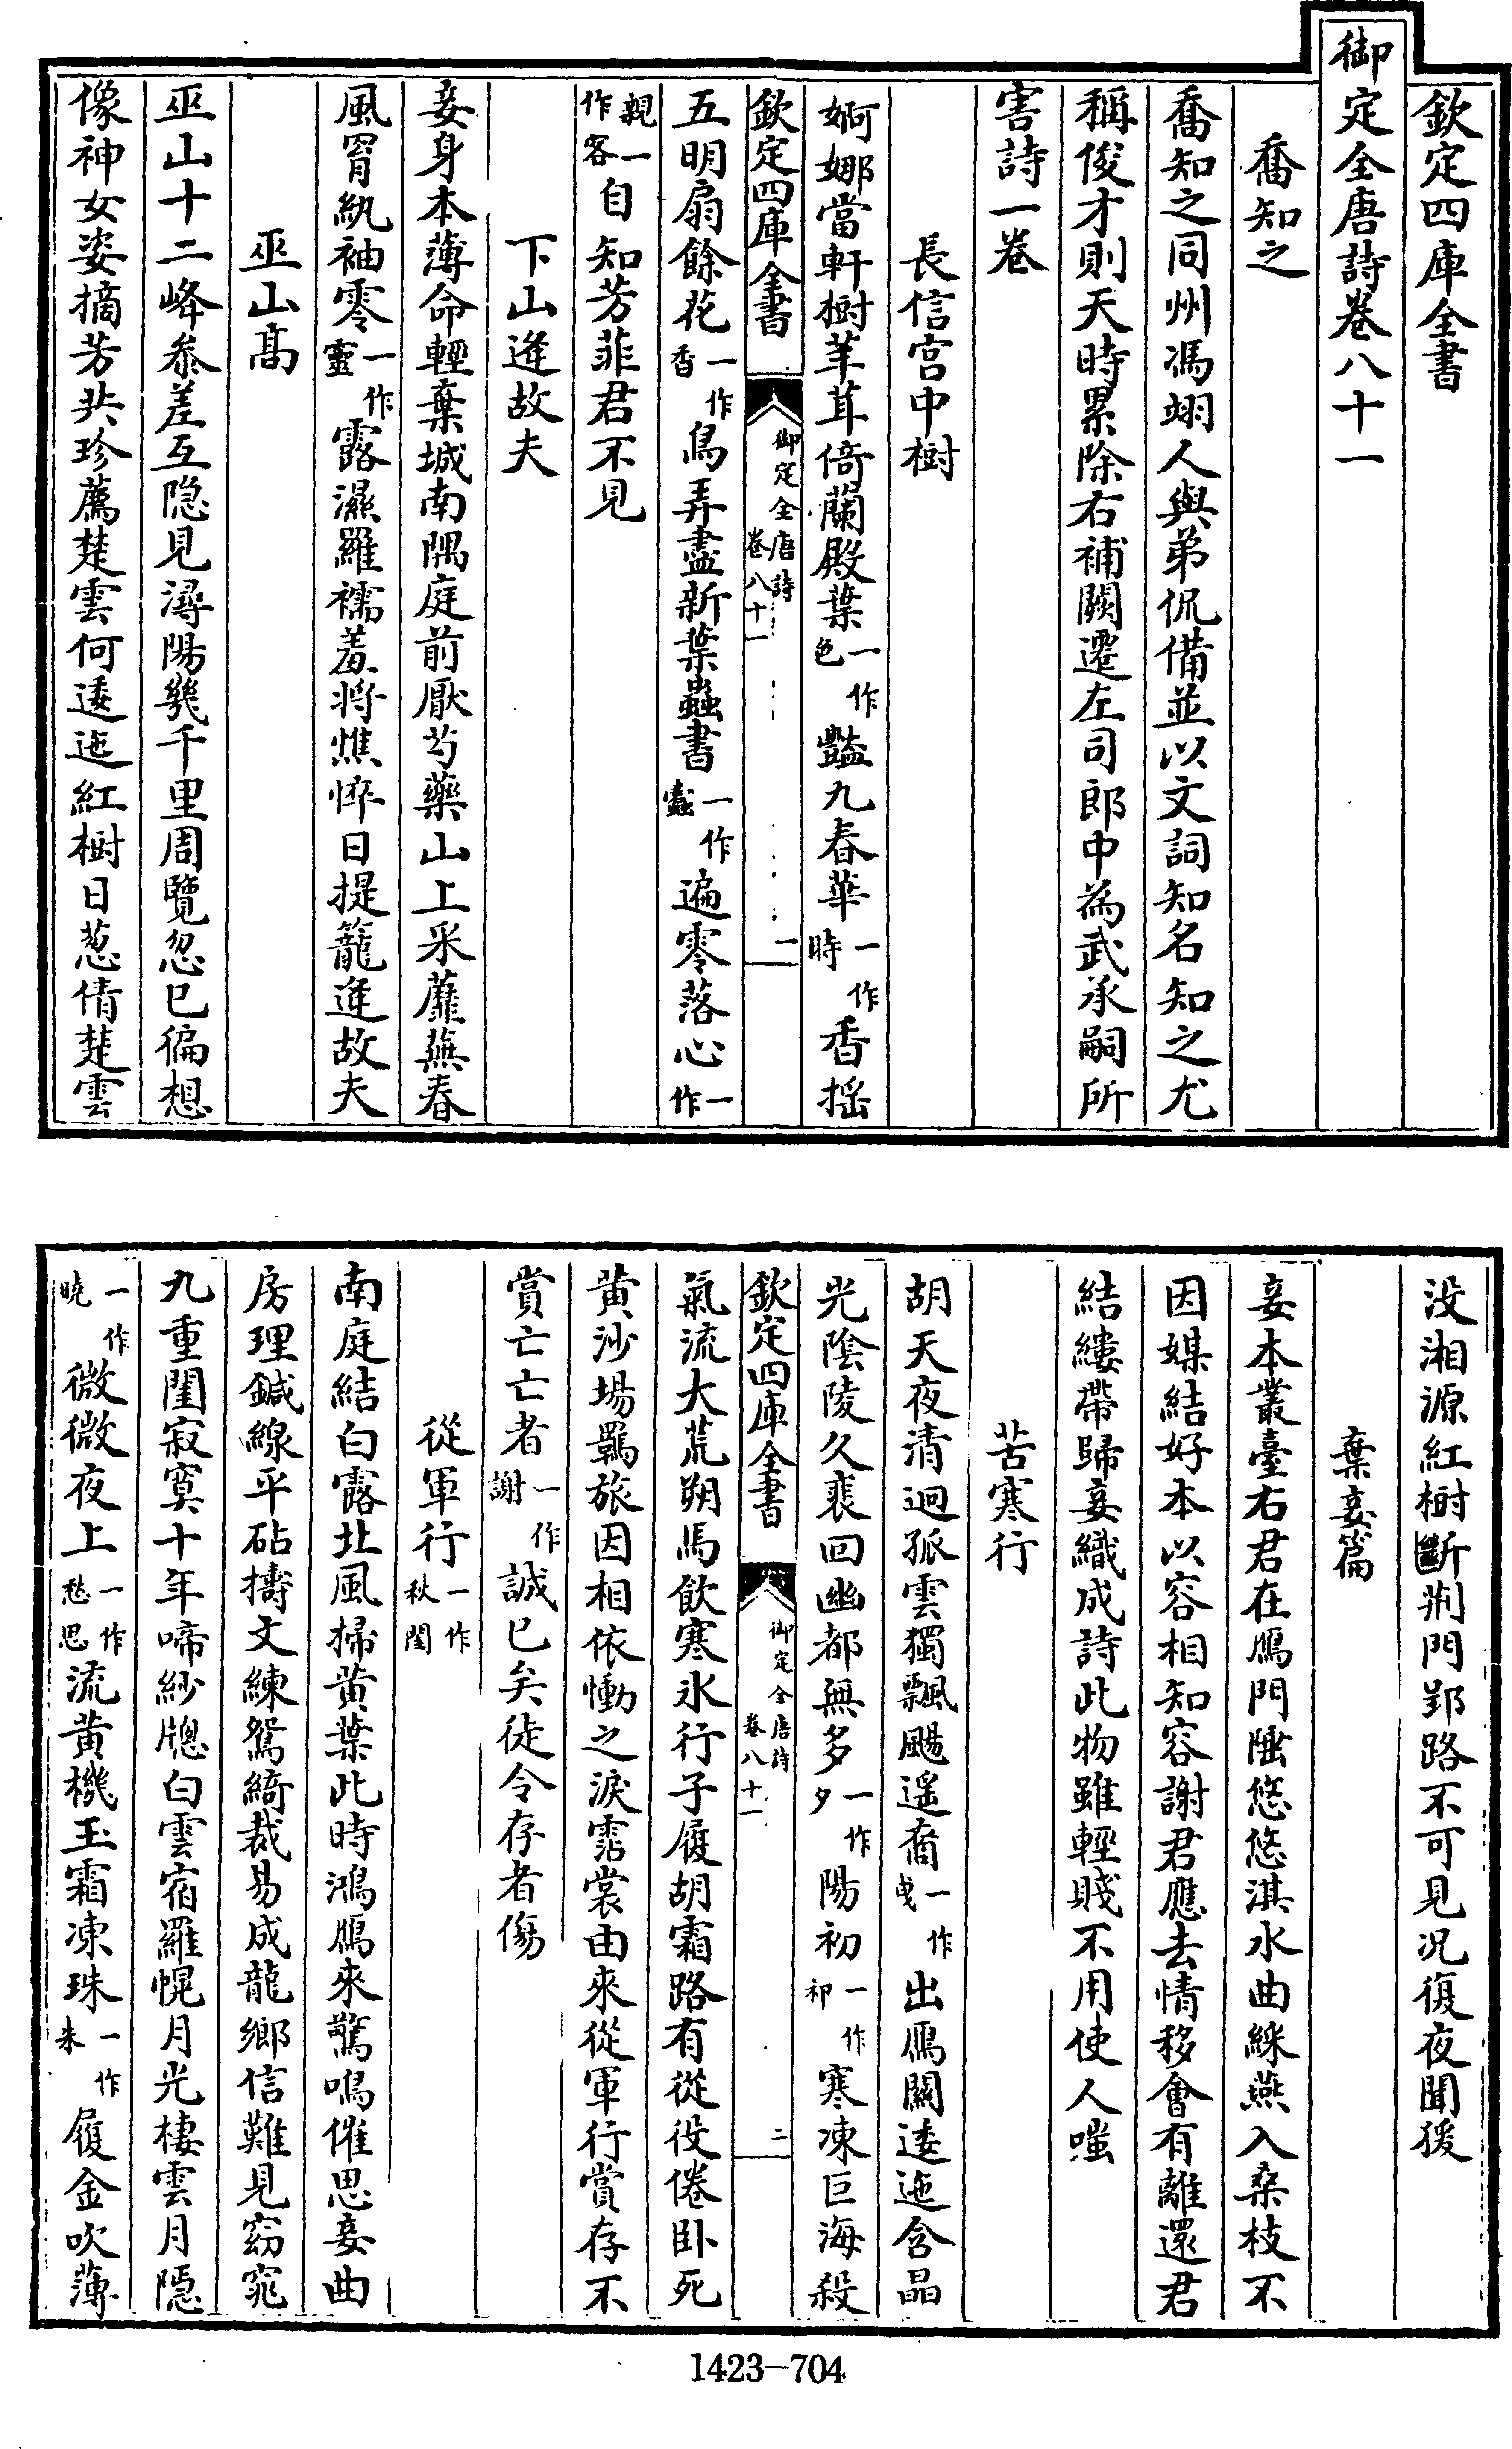 欽定四庫全書
御定全唐詩卷八十一
喬知之
喬知之同州馮翊人與弟侃備並以文詞知名知之尤
稱俊才則天時累除右補闕遷左司郎中為武承嗣所
害詩一卷
長信宫中樹
婀娜當軒樹䒠茸倚蘭殿葉一作色豔九春華一作時香揺
欽定四庫全書
御定全唐詩
卷八十一
一
五明扇餘花一作香鳥弄盡新葉蟲書一作蠹遍零落心一作
親一作客自知芳菲君不見
下山逢故夫
妾身本薄命輕棄城南隅庭前厭芍藥山上采蘼蕪春
風罥紈袖零一作靈露濕羅襦羞將憔悴日提籠逢故夫
巫山高
巫山十二峰參差互隠見潯陽幾千里周覽忽已徧想
像神女姿摘芳共珍薦楚雲何逶迤紅樹日葱倩楚雲
没湘源紅樹斷荆門郢路不可見况復夜聞猨
棄妾篇
妾本叢臺右君在鴈門陲悠悠淇水曲綵燕入桑枝不
因媒結好本以容相知容謝君應去情移會有離還君
結縷帶歸妾織成詩此物雖輕賤不用使人嗤
苦寒行
胡天夜清迥孤雲獨飄颺遥裔一作曵出鴈闗逶迤含晶
光陰陵久裴回幽都無多一作夕陽初一作祁寒凍巨海殺
欽定四庫全書
御定全唐詩
卷八十一
二
氣流大荒朔馬飲寒氷行子履胡霜路有從役倦卧死
黄沙場羈旅因相依慟之淚霑裳由來從軍行賞存不
賞亡亡者一作謝誠已矣徒令存者傷
從軍行一作秋閨
南庭結白露北風掃黄葉此時鴻鴈來驚鳴催思妾曲
房理鍼線平砧擣文練鴛綺裁易成龍鄉信難見窈窕
九重閨寂寞十年啼紗牕白雲宿羅幌月光棲雲月隠
一作曉微微夜上一作愁思流黄機玉霜凍珠一作朱履金吹薄
1423-704